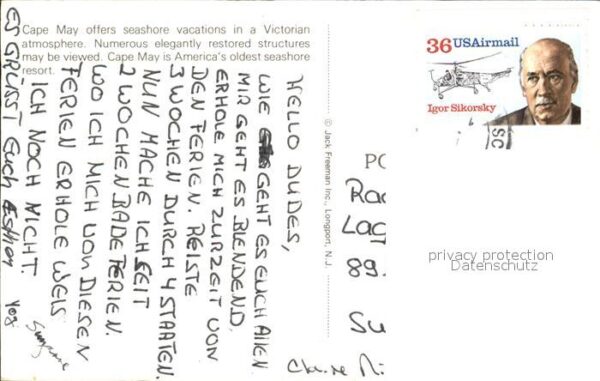 Cape May offers seashore vacations in a Victorian
atmosphere. Numerous elegantly restored structures
may be viewed. Cape May is America's oldest seashore
resort.
HELLO DUDES,
WIE GEHT ES EUCH ALLEN
MIR GEHT ES BLENDEND,
ERHOLE MICH ZURZEIT VON
DEN FERIEN. REISTE
3 WOCHEN DURCH 4 STAATEN.
NUN MACHE ICH SEIT
2 WOCHEN BADEFERIEN.
WO ICH MICH VON DIESEN
FERIEN ERHOLE WEIS
ICH NOCH NICHT.
ES GRÜSST EUCH
© Jack Freeman Inc., Longport, N.J.
36 USAirmail
Igor Sikorsky
SC
PO
Rad
Lag
89
Su
privacy protection
Datenschutz